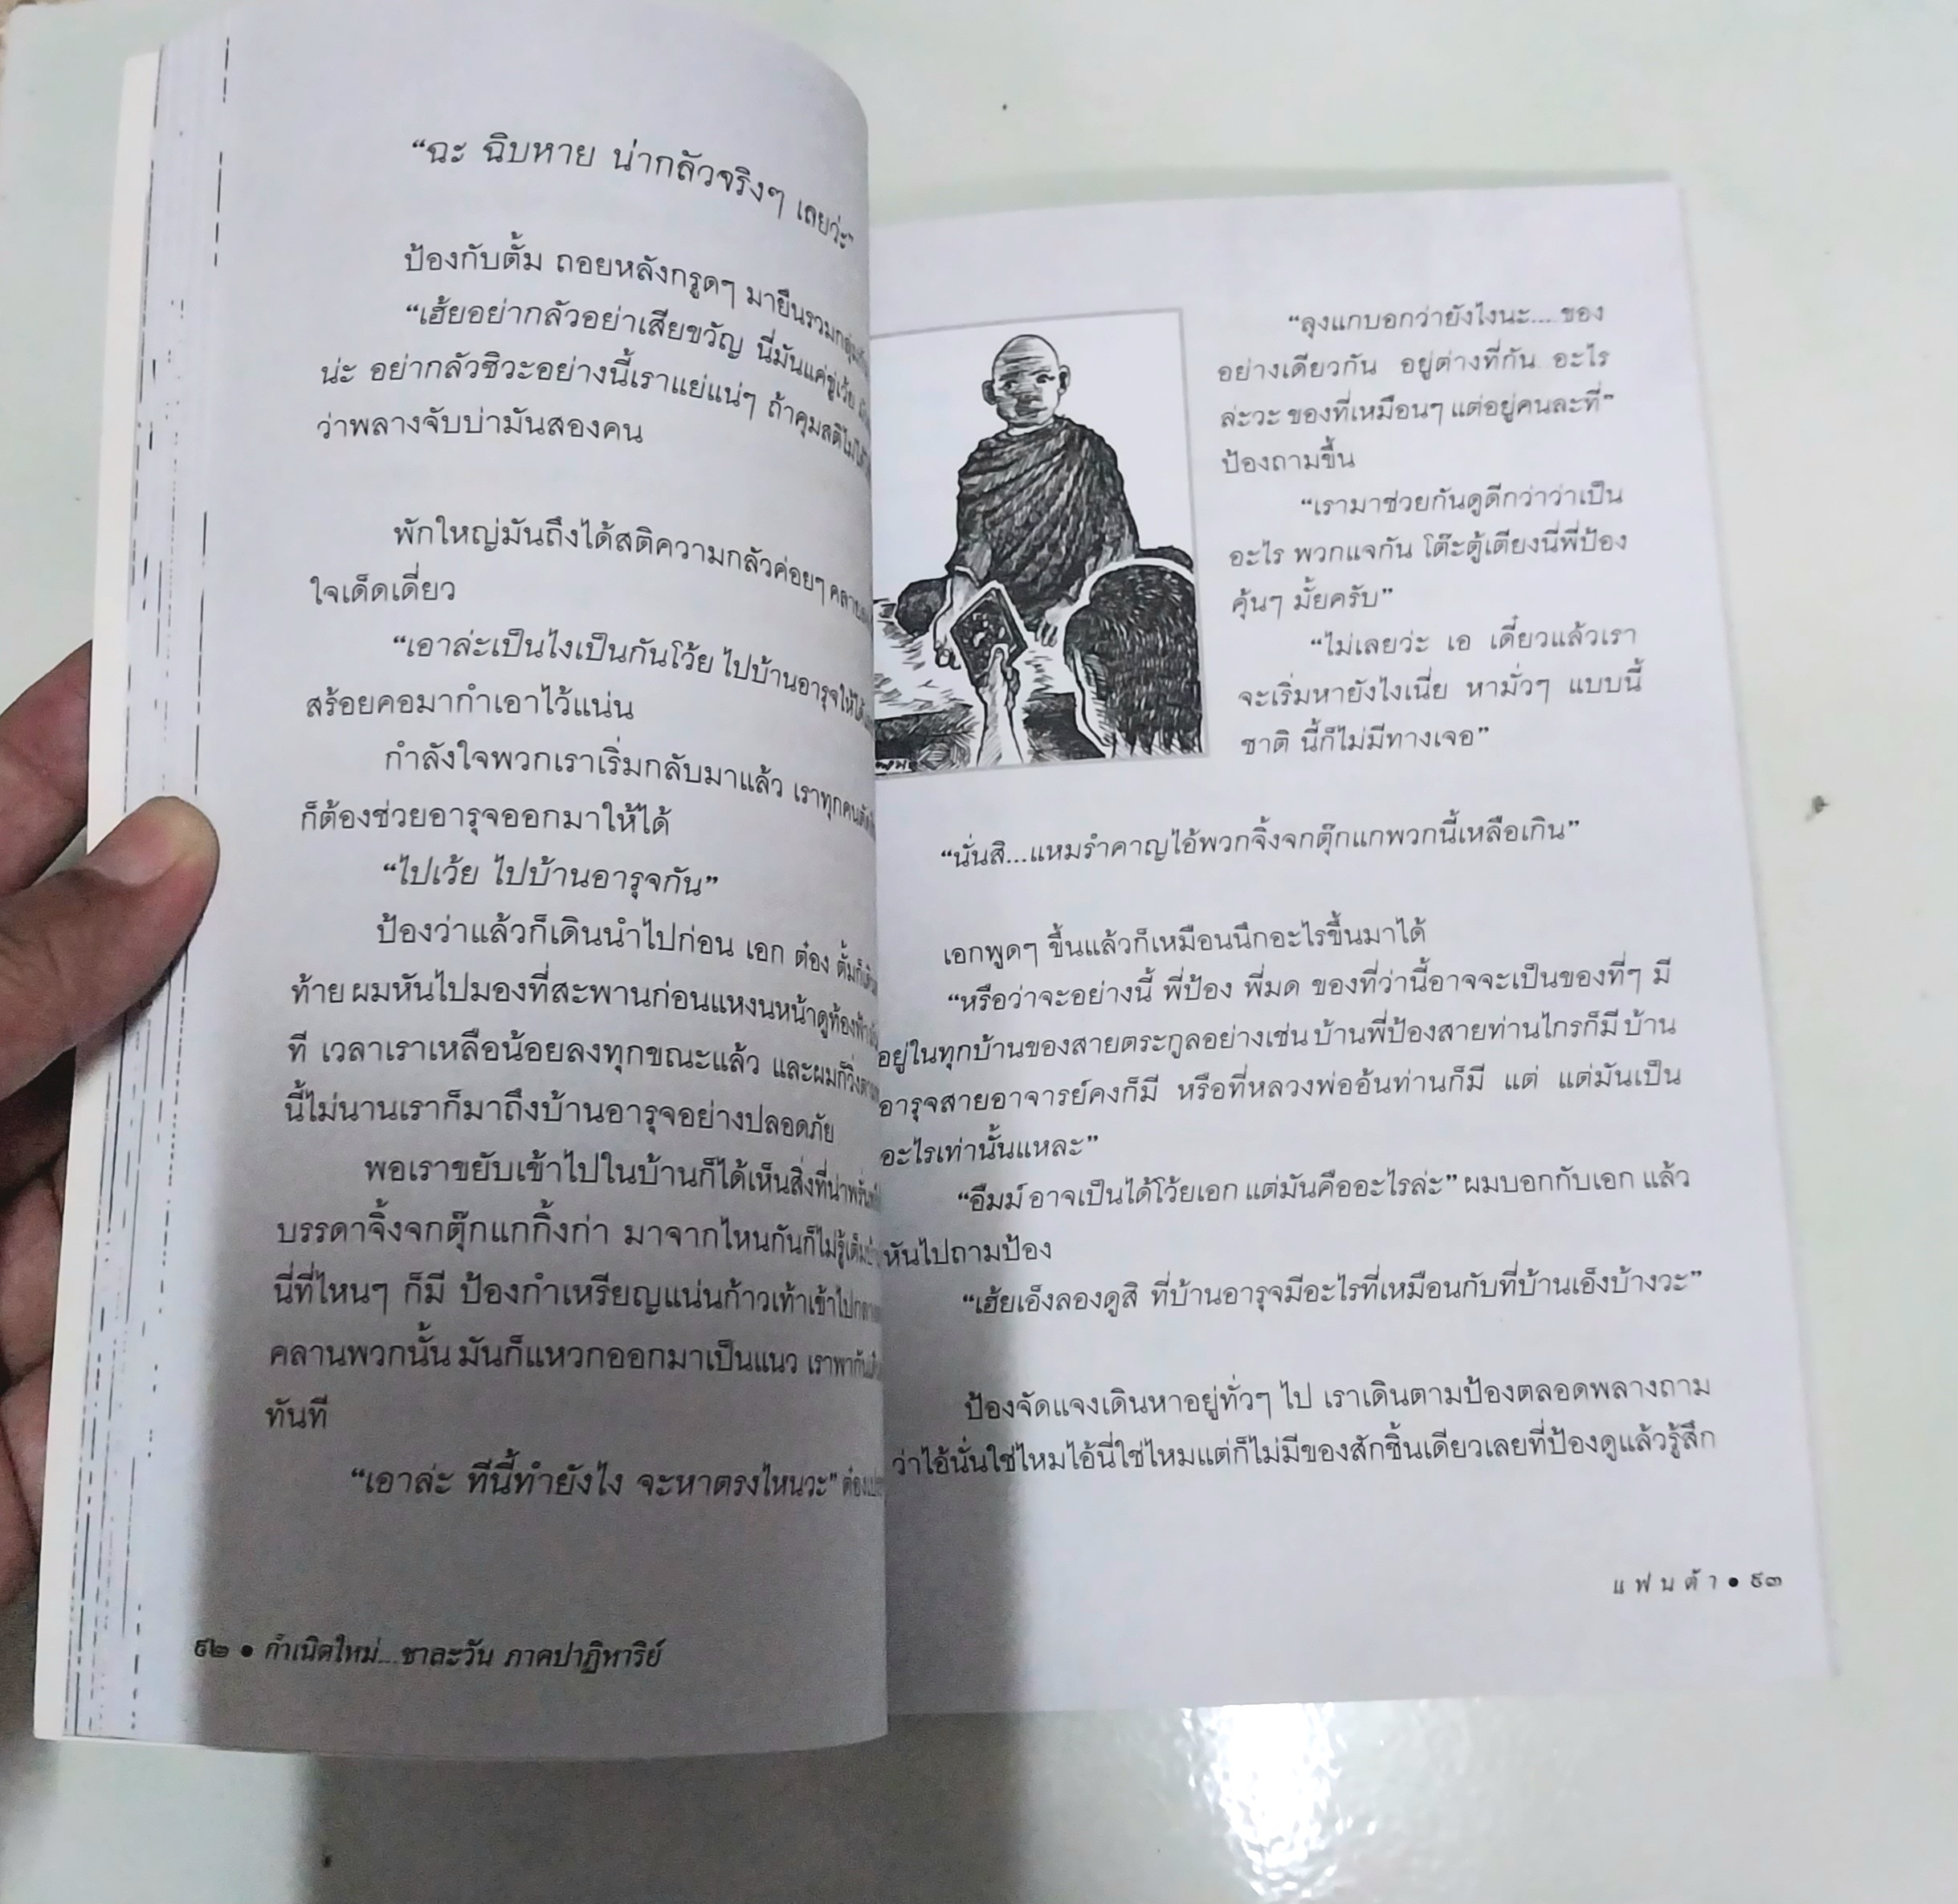 “ฉะ ฉิบหาย น่ากลัวจริงๆ เลยว่ะ”
ป้องกับตั้ม ถอยหลังกรูดๆ มายืนรวมกลุ่ม
“เฮ้ยอย่ากลัวอย่าเสียขวัญ นี่มันแค่ขู่เว้ย
น่ะ อย่ากลัวซิวะอย่างนี้เราแย่แน่ๆ ถ้าคุมสติไม่ได้
ว่าพลางจับบ่ามันสองคน
พักใหญ่มันถึงได้สติความกลัวค่อยๆ
ใจเด็ดเดี่ยว
“เอาล่ะเป็นไงเป็นกันโว้ย ไปบ้านอารุจให้ได้
สร้อยคอมากำเอาไว้แน่น
กำลังใจพวกเราเริ่มกลับมาแล้ว เราทุกคน
ก็ต้องช่วยอารุจออกมาให้ได้
“ไปเว้ย ไปบ้านอารุจกัน”
ป้องว่าแล้วก็เดินนำไปก่อน เอก ต๋อง ตั้มก็
ท้าย ผมหันไปมองที่สะพานก่อนแหงนหน้าดูท้องฟ้า
ที เวลาเราเหลือน้อยลงทุกขณะแล้ว และผมก็วิ่ง
นี้ไม่นานเราก็มาถึงบ้านอารุจอย่างปลอดภัย
พอเราขยับเข้าไปในบ้านก็ได้เห็นสิ่งที่
บรรดาจิ้งจกตุ๊กแกกิ้งก่า มาจากไหนกันก็ไม่รู้
นี่ที่ไหนๆ ก็มี ป้องกำเหรียญแน่นก้าวเท้าเข้าไป
คลานพวกนั้น มันก็แหวกออกมาเป็นแนว เราพากัน
ทันที
“เอาล่ะ ทีนี้ทำยังไง จะหาตรงไหนวะ” ต๋อง
๙๒ ● กำเนิดใหม่...ชาละวัน ภาคปาฏิหาริย์
“ลุงแกบอกว่ายังไงนะ... ของ
อย่างเดียวกัน อยู่ต่างที่กัน อะไร
ล่ะวะ ของที่เหมือนๆ แต่อยู่คนละที่”
ป้องถามขึ้น
“เรามาช่วยกันดูดีกว่าว่าเป็น
อะไร พวกแจกัน โต๊ะตู้เตียงนี่พี่ป้อง
คุ้นๆ มั้ยครับ”
“ไม่เลยว่ะ เอ เดี๋ยวแล้วเรา
จะเริ่มหายังไงเนี่ย หามั่วๆ แบบนี้
ชาติ นี้ก็ไม่มีทางเจอ”
“นั่นสิ...แหมรำคาญไอ้พวกจิ้งจกตุ๊กแกพวกนี้เหลือเกิน”
เอกพูดๆ ขึ้นแล้วก็เหมือนนึกอะไรขึ้นมาได้
“หรือว่าจะอย่างนี้ พี่ป้อง พี่มด ของที่ว่านี้อาจจะเป็นของที่ๆ มี
อยู่ในทุกบ้านของสายตระกูลอย่างเช่น บ้านพี่ป้องสายท่านไกรก็มี บ้าน
อารุจสายอาจารย์คงก็มี หรือที่หลวงพ่ออ้นท่านก็มี แต่ แต่มันเป็น
อะไรเท่านั้นแหละ”
“อืมม์ อาจเป็นได้โว้ยเอก แต่มันคืออะไรล่ะ” ผมบอกกับเอก แล้ว
หันไปถามป้อง
“เฮ้ยเอ็งลองดูสิ ที่บ้านอารุจมีอะไรที่เหมือนกับที่บ้านเอ็งบ้างวะ”
ป้องจัดแจงเดินหาอยู่ทั่วๆ ไป เราเดินตามป้องตลอดพลางถาม
ว่าไอ้นั่นใช่ไหมไอ้นี่ใช่ไหมแต่ก็ไม่มีของสักชิ้นเดียวเลยที่ป้องดูแล้วรู้สึก
แฟนต้า ● ๙๓